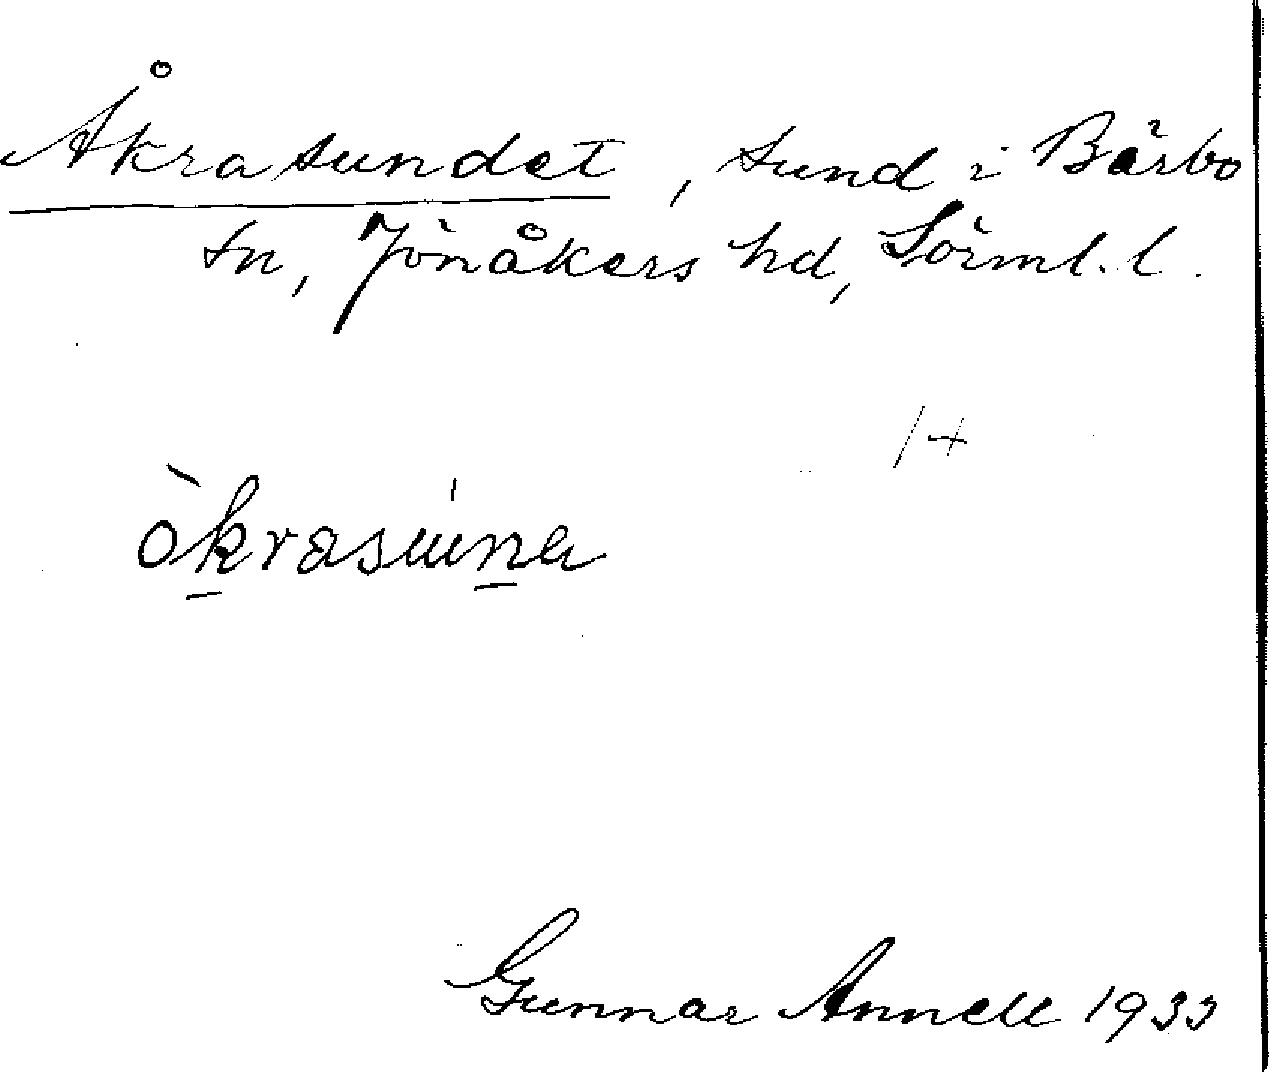 Åkrasundet, sund i Bärbo
sn, Jönåkers hd, Sörml. l.
/+
òkrasuna
Gunnar Annell 1933